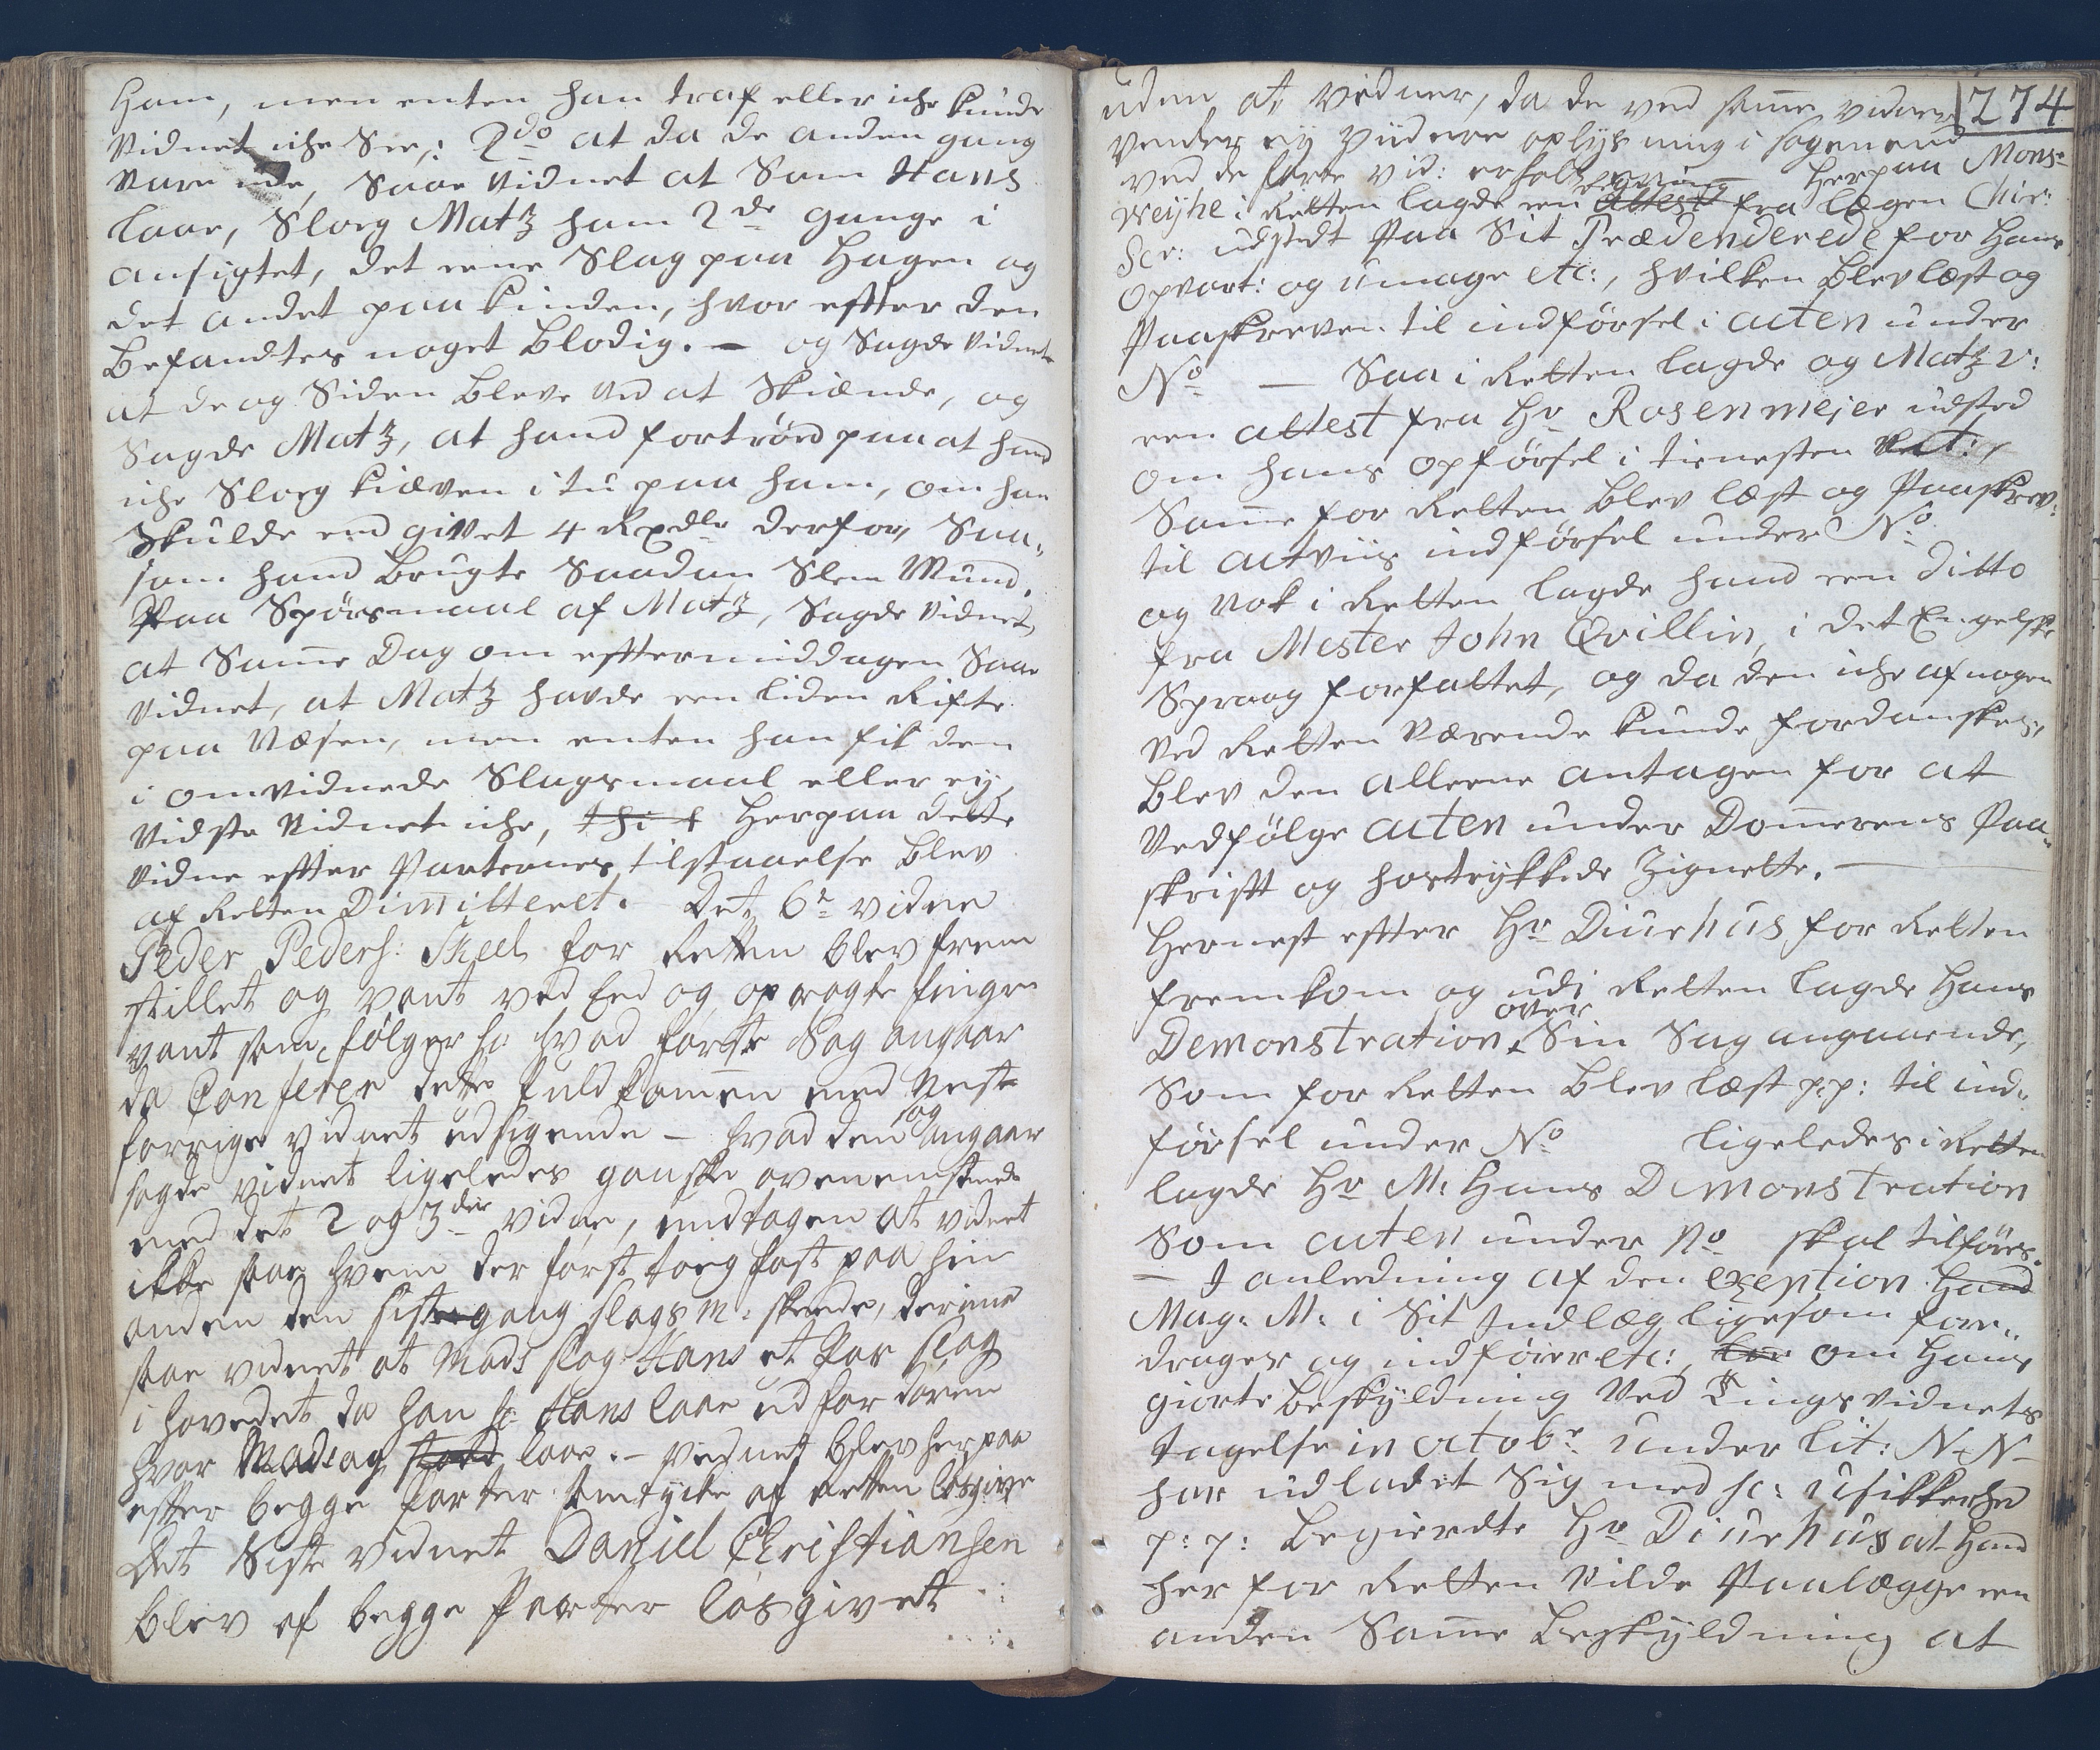 Ham, men enten han traf eller iche kunde
Vidnet iche See,: 2do at da de anden gang
Vare inde, Saae Vidnet at Som Hans
laae, Sloeg Matz ham 2de gange i
ansigtet, det eene Slag paa Hagen og
det andet paa kinden, hvor effter den
befandtes noget Blodig. — og Sagde Vidnet
at de og Siden bleve Ved at Skiænde, og
Sagde Matz, at hand fortrød paa at hand
iche Sloeg kiæven i tu paa ham, om han
Skulde end givet 4 Rxdlr derfor, Saa„
som hand Brugte Saadan Slem Mund.
Paa Spørsmaal af Matz, Sagde Vidnet,
at Samme Dag om efftermiddagen Saae
Vidnet, at Matz havde een liden Rifte
paa Næsen, men enten han fik den
i omvidnede Slagsmaal eller ey,
Vidste Vidnet iche, Herpaa dette
Vidne effter Parternes tilstaaelse blev
af Retten Dimitteret. Det 6te vidne
Peder Peders: Skeel for Retten blev frem
stillet og vant ved Eed og opragte finger
vant som følger sc: hvad første Sag angaar
da Confererer dette fuldkommen med Neste
forrige vidnets udsigende — hvad den sag angaar
sagde vidnet ligeledes ganske overenemstemede
med det 2 og 3die vidne, undtagen at vidnet
ikke saae hvem der først toeg fast paa hin
anden den siste gang slagsm: skeede, derinne
saae vidnet at Mads slog Hans et Par slag
i hovedet da han sc: Hans laae ud for døren
hvor Mads og laae. — vidnet blev her paa
effter begge Parter Samtycke af Retten løsgive
Det Siste vidnet Daniel Christiansen
blev af begge Parter løsgivett
274
uden at vidner, da de ved samme vidner
vendes ey viidere oplysning i sagen end
ved de førte vid: erholdt Herpaa Monsr
Weyhe i Retten lagde een Regning fra lægen Chir:
Scr: udstedt Paa Sit Prædenderede for hans
Opvart: og umage etc:, hvilken blev læst og
Paaskreven til indførsel i acten under
No — Saa i Retten lagde og Matz v:
een attest fra Hr Rosenmejer udsted
om hans opførsel i tienesten
Samme for Retten blev læst og Paaskrev:
til actviis indførsel under No
og Nok i Retten lagde hand een ditto
fra Mester John Qvillin, i det Engelske
Spraag forfattet, og da den iche af nogen
Ved Retten Værende kunde fordanskes,
blev den alleene antagen for at
Vedfølge acten under Dommerens Paa„
skrifft og hostrykkede Zignette. —
Hernest effter Hr Diurhus for Retten
fremkom og udi Retten lagde Hans
Demonstration over Sin Sag angaaende,
Som for Retten blev læst p:p: til ind„
førsel under No ligeledes i Retten
lagde Hr M: Hans Demonstration
Som acten under No skal tilføres.
— I anledning af den exeption Hand
Mag: M: i Sit Indlæg ligesom fore„
drager og indfører etc: om Hans
giorte beskyldning Ved Tingsvidnets
tagelse in octobr under lit: N. N —
har udladet Sig med sc: usikkerhed
p: p: begierdte Hr Diurhus at Hand
her for Retten Vilde Paalægge een
anden Samme beskyldning at